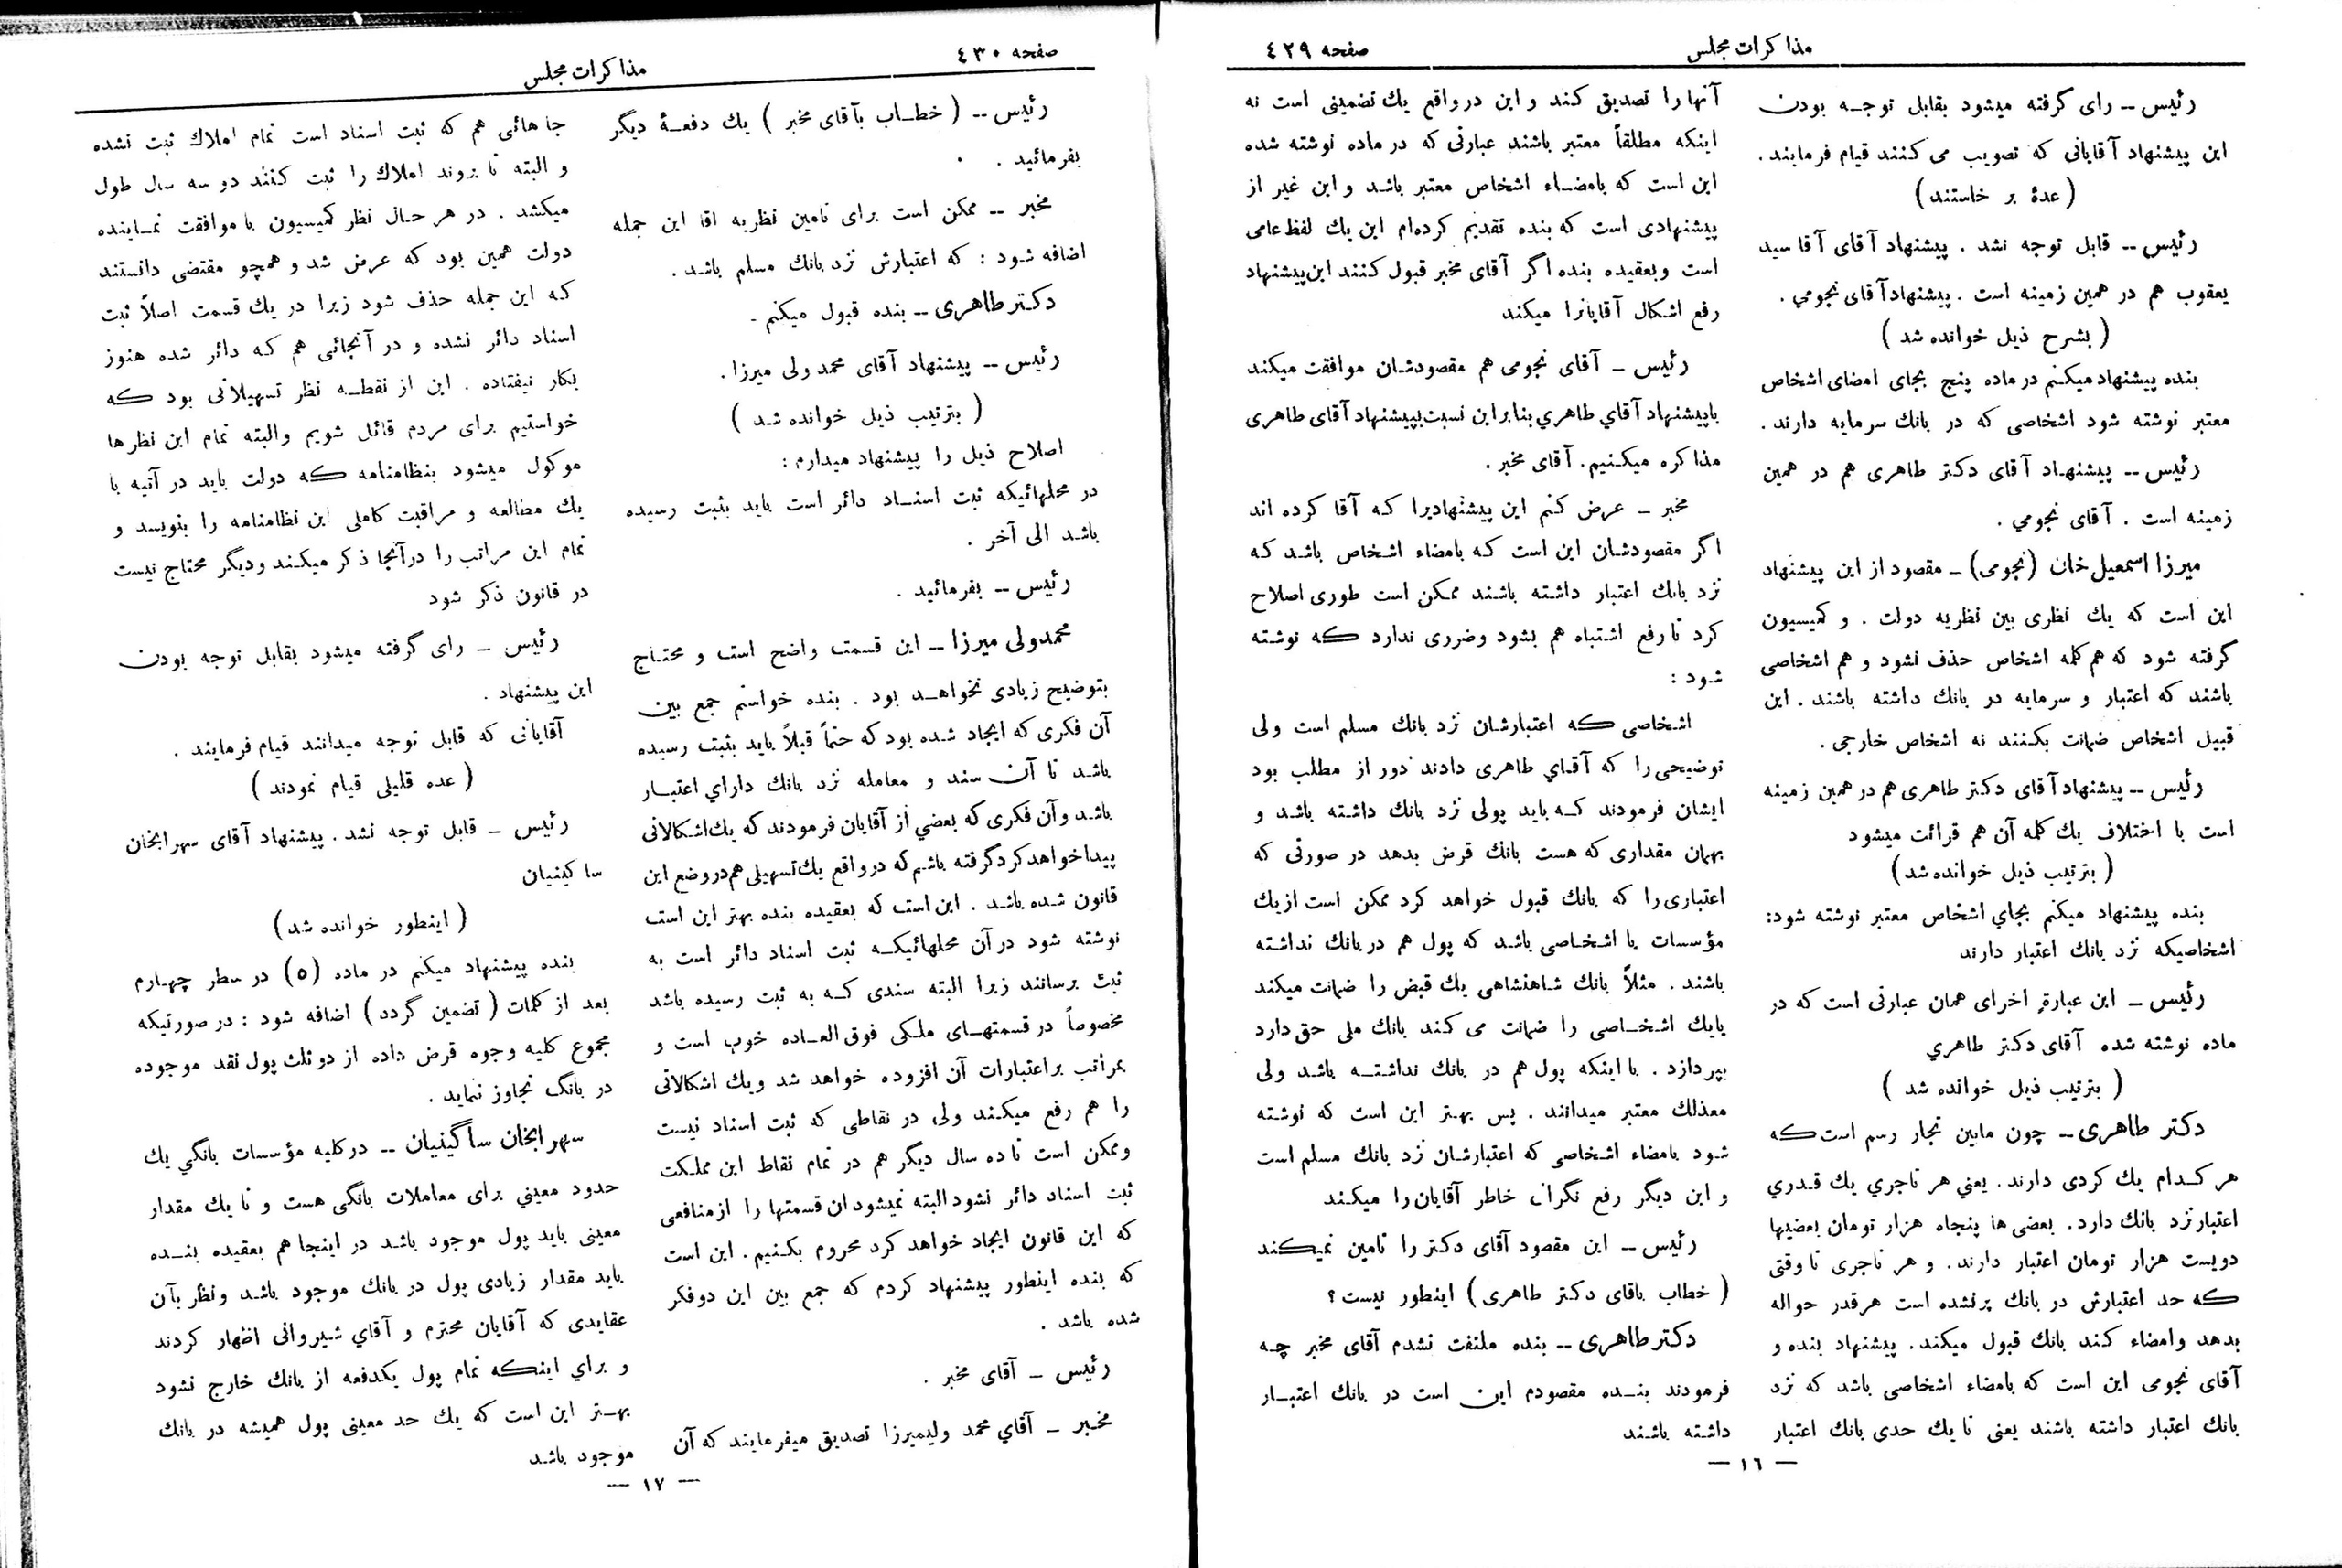 مذاکرات مجلس
صفحه ٤٢٩
رئیس -- رای گرفته میشود بقابل توجه بودن
این پیشنهاد آقایانی که تصویب می کنند قیام فرمایند .
( عدۀ بر خاستند )
رئیس -- قابل توجه نشد . پیشنهاد آقای آقا سید
یعقوب هم در همین زمینه است . پیشنهاد آقای نجومی .
( بشرح ذیل خوانده شد )
بنده پیشنهاد میکنم در ماده پنج بجای امضای اشخاص
معتبر نوشته شود اشخاصی که در بانك سرمایه دارند .
رئیس -- پیشنهاد آقای دکتر طاهری هم در همین
زمینه است . آقای نجومی .
میرزا اسمعیل خان (نجومی) - مقصود از این پیشنهاد
این است که یك نظری بین نظریه دولت . و کمیسیون
گرفته شود که هم کلمه اشخاص حذف نشود و هم اشخاصی
باشند که اعتبار و سرمایه در بانك داشته باشند . این
قبیل اشخاص ضمانت بکنند نه اشخاص خارجی .
رئیس -- پیشنهاد آقای دکتر طاهری هم در همین زمینه
است با اختلاف یك کلمه آن هم قرائت میشود
( بترتیب ذیل خوانده شد )
بنده پیشنهاد میکنم بجای اشخاص معتبر نوشته شود:
اشخاصیکه نزد بانك اعتبار دارند
رئیس - این عبارة اخرای همان عبارتی است که در
ماده نوشته شده آقای دکتر طاهري
( بترتیب ذیل خوانده شد )
دکتر طاهری -- چون مابین تجار رسم است که
هر کدام یك کردی دارند . یعني هر تاجري یك قدري
اعتبار نزد بانك دارد. بعضی ها پنجاه هزار تومان بعضیها
دویست هزار تومان اعتبار دارند. و هر تاجری تا وقتی
که حد اعتبارش در بانك پرنشده است هرقدر حواله
بدهد وامضاء کند بانك قبول میکند. پیشنهاد بنده و
آقای نجومی این است که بامضاء اشخاصی باشد که نزد
بانك اعتبار داشته باشند یعنی تا یك حدی بانك اعتبار
آنها را تصدیق کند و این در واقع یك تضمینی است نه
اینکه مطلقاً معتبر باشند عبارتی که در ماده نوشته شده
این است که بامضاء اشخاص معتبر باشد و این غیر از
پیشنهادی است که بنده تقدیم کرده‌ام این یك لفظ عامی
است و بعقیده بنده اگر آقای مخبر قبول کنند این پیشنهاد
رفع اشکال آقایانرا میکند
رئیس - آقای نجومی هم مقصودشان موافقت میکند
با پیشنهاد آقاي طاهري بنابر این نسبت بپیشنهاد آقای طاهری
مذاکره میکنیم. آقای مخبر .
مخبر - عرض کنم این پیشنهادیرا که آقا کرده اند
اگر مقصودشان این است که بامضاء اشخاص باشد که
نزد بانك اعتبار داشته باشند ممکن است طوری اصلاح
کرد تا رفع اشتباه هم بشود وضرری ندارد که نوشته
شود :
اشخاصی که اعتبارشان نزد بانك مسلم است ولی
توضیحی را که آقای طاهری دادند دور از مطلب بود
ایشان فرمودند که باید پولی نزد بانك داشته باشد و
بهمان مقداری که هست بانك قرض بدهد در صورتی که
اعتباری را که بانك قبول خواهد کرد ممکن است از یك
مؤسسات یا اشخاصی باشد که پول هم در بانك نداشته
باشند . مثلاً بانك شاهنشاهی یك قبض را ضمانت میکند
یا یك اشخاصی را ضمانت می کند بانك ملی حق دارد
بپردازد . با اینکه پول هم در بانك نداشته باشد ولی
معذلك معتبر میدانند . پس بهتر این است که نوشته
شود بامضاء اشخاصی که اعتبارشان نزد بانك مسلم است
و این دیگر رفع نگرانی خاطر آقایان را میکند
رئیس - این مقصود آقای دکتر را تامین نمیکند
( خطاب باقای دکتر طاهری ) اینطور نیست ؟
دکتر طاهری -- بنده ملتفت نشدم آقای مخبر چه
فرمودند بنده مقصودم این است در بانك اعتبار
داشته باشند
— ١٦ —
صفحه ٤٣٠
مذاکرات مجلس
رئیس -- ( خطاب بآقای مخبر ) یك دفعۀ دیگر
بفرمائید .
مخبر -- ممکن است برای تامین نظریه اقا این جمله
اضافه شود : که اعتبارش نزد بانك مسلم باشد .
دکتر طاهری -- بنده قبول میکنم -
رئیس -- پیشنهاد آقای محمد ولی میرزا.
( بترتیب ذیل خوانده شد )
اصلاح ذیل را پیشنهاد میدارم :
در محلهائیکه ثبت اسناد دائر است باید بثبت رسیده
باشد الی آخر .
رئیس -- بفرمائید .
محمدولی میرزا -- این قسمت واضح است و محتاج
بتوضیح زیادی نخواهد بود . بنده خواستم جمع بین
آن فکری که ایجاد شده بود که حتماً قبلاً باید بثبت رسیده
باشد تا آن سند و معامله نزد بانك دارای اعتبار
باشد و آن فکری که بعضي از آقایان فرمودند که یك اشکالاتی
پیدا خواهد کرد گرفته باشم که در واقع یك تسهیلی هم در وضع این
قانون شده باشد . این است که بعقیده بنده بهتر این است
نوشته شود در آن محلهائیکه ثبت اسناد دائر است به
ثبت برسانند زیرا البته سندی که به ثبت رسیده باشد
مخصوصاً در قسمتهای ملکی فوق العاده خوب است و
بمراتب بر اعتبارات آن افزوده خواهد شد و یك اشکالاتی
را هم رفع میکند ولی در نقاطی که ثبت اسناد نیست
و ممکن است تا ده سال دیگر هم در تمام نقاط این مملکت
ثبت اسناد دائر نشود البته نمیشود ان قسمتها را از منافعی
که این قانون ایجاد خواهد کرد محروم بکنیم . این است
که بنده اینطور پیشنهاد کردم که جمع بین این دو فکر
شده باشد .
رئیس - آقای مخبر .
مخبر - آقاي محمد ولیمیرزا تصدیق میفرمایند که آن
جاهائی هم که ثبت اسناد است تمام املاك ثبت نشده
و البته تا بروند املاك را ثبت کنند دو سه سال طول
میکشد . در هر حال نظر کمیسیون با موافقت نماینده
دولت همین بود که عرض شد و همچو مقتضی دانستند
که این جمله حذف شود زیرا در یك قسمت اصلاً ثبت
اسناد دائر نشده و در آنجائی هم که دائر شده هنوز
بکار نیفتاده . این از نقطه نظر تسهیلاتی بود که
خواستیم برای مردم قائل شویم والبته تمام این نظر ها
موکول میشود بنظامنامه که دولت باید در آتیه با
یك مطالعه و مراقبت کاملی این نظامنامه را بنویسد و
تمام این مراتب را در آنجا ذکر میکند و دیگر محتاج نیست
در قانون ذکر شود
رئیس - رای گرفته میشود بقابل توجه بودن
این پیشنهاد .
آقایانی که قابل توجه میدانند قیام فرمایند .
( عده قلیلی قیام نمودند )
رئیس - قابل توجه نشد . پیشنهاد آقای سهرابخان
ساکینیان
( اینطور خوانده شد )
بنده پیشنهاد میکنم در ماده (٥) در سطر چهارم
بعد از کلمات ( تضمین گردد ) اضافه شود : در صورتیکه
مجموع کلیه وجوه قرض داده از دو ثلث پول نقد موجوده
در بانگ تجاوز ننماید .
سهرابخان ساگینیان -- در کلیه مؤسسات بانگي یك
حدود معیني برای معاملات بانگی هست و تا یك مقدار
معینی باید پول موجود باشد در اینجا هم بعقیده بنده
باید مقدار زیادی پول در بانك موجود باشد ونظر بآن
عقایدی که آقایان محترم و آقاي شیروانی اظهار کردند
و براي اینکه تمام پول یکدفعه از بانك خارج نشود
بهتر این است که یك حد معینی پول همیشه در بانك
موجود باشد
— ١٧ —